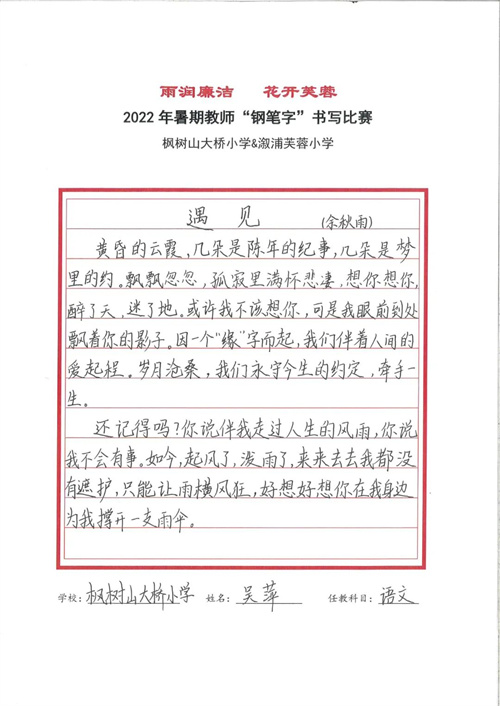 雨润廉洁 花开芙蓉
2022年暑期教师“钢笔字”书写比赛
枫树山大桥小学&溆浦芙蓉小学
遇见 (余秋雨)
黄昏的云霞,几朵是陈年的纪事,几朵是梦
里的约。飘飘忽忽,孤寂里满怀悲凄,想你想你,
醉了天,迷了地。或许我不该想你,可是我眼前到处
飘着你的影子。因一个“缘”字而起,我们伴着人间的
爱起程。岁月沧桑,我们永守今生的约定,牵手一
生。
还记得吗?你说伴我走过人生的风雨,你说
我不会有事。如今,起风了,泼雨了,来来去去我都没
有遮护,只能让雨横风狂,好想好想你在我身边
为我撑开一支雨伞。
学校:枫树山大桥小学 姓名:吴萍 任教科目:语文